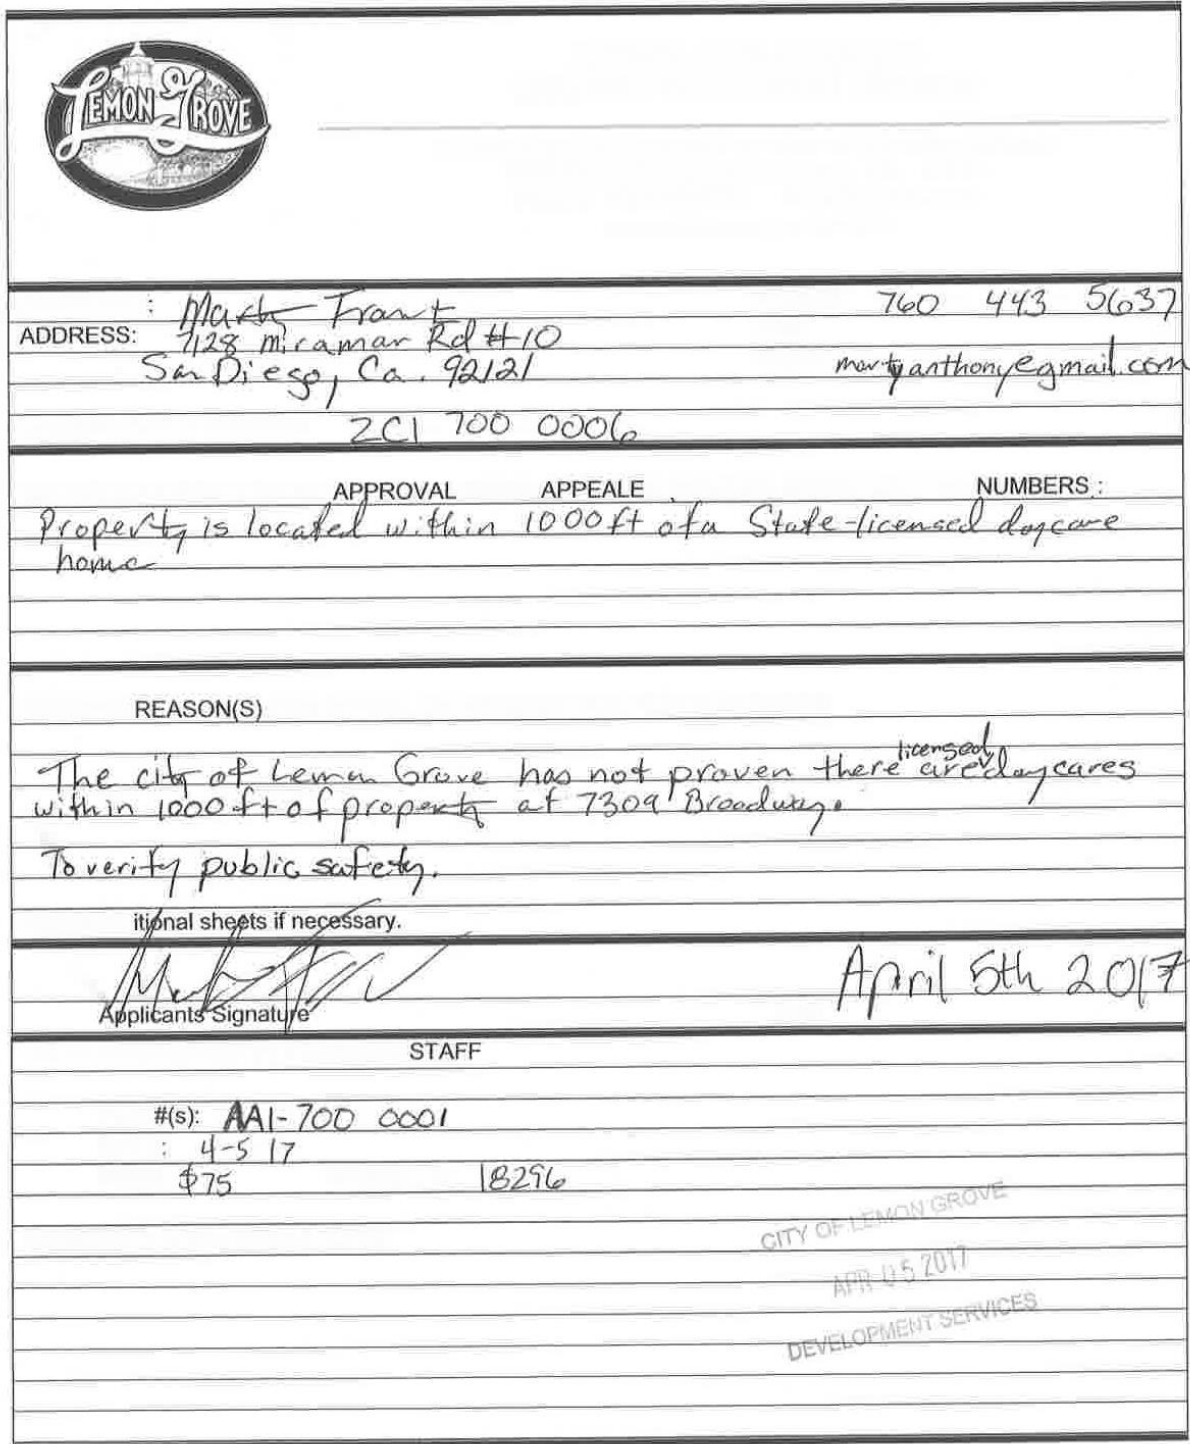 LEMON GROVE
: Marty Frant 760 443 5637
ADDRESS: 7128 miramar Rd #10
San Diego, Ca. 92121 martyanthony@gmail.com
ZC1 700 0006
APPROVAL APPEALE NUMBERS :
Property is located within 1000 ft of a State-licensed daycare
home
REASON(S)
licensed
The city of Lemon Grove has not proven there are daycares
within 1000 ft of property at 7309 Broadway.
To verify public safety.
itional sheets if necessary.
April 5th 2017
Applicants Signature
STAFF
#(s): AA1-700 0001
: 4-5 17
$75 18296
CITY OF LEMON GROVE
APR 05 2017
DEVELOPMENT SERVICES